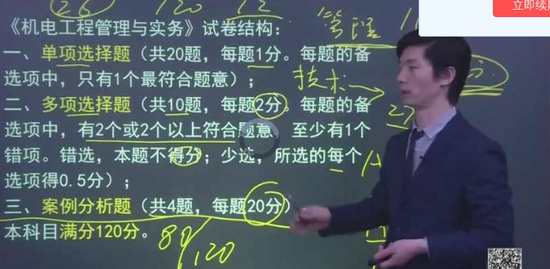 26 120 12
立即续
《机电工程管理与实务》试卷结构：
管理
一、单项选择题（共20题，每题1分。每题的备
选项中，只有1个最符合题意）；
技术
二、多项选择题（共10题，每题2分。每题的备
选项中，有2个或2个以上符合题意，至少有1个
错项。错选，本题不得分；少选，所选的每个
选项得0.5分）；
三、案例分析题（共4题，每题20分）
本科目满分120分。
80/120